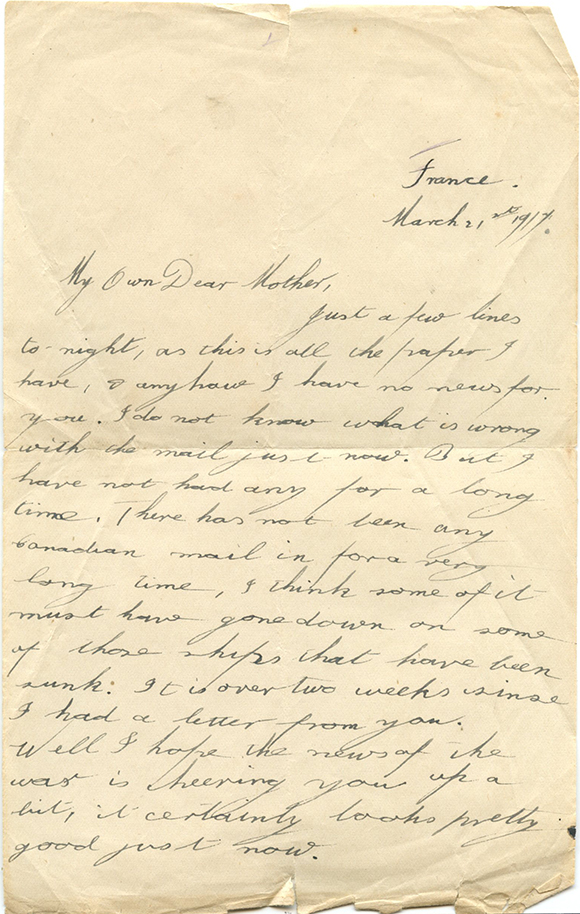 France.
March 21st 1917.
My Own Dear Mother,
Just a few lines
to-night, as this is all the paper I
have, & anyhow I have no news for
you. I do not know what is wrong
with the mail just now. But I
have not had any for a long
time. There has not been any
Canadian mail in for a very
long time, I think some of it
must have gone down on some
of those ships that have been
sunk. It is over two weeks sinse
I had a letter from you.
Well I hope the news of the
war is cheering you up a
bit, it certainly looks pretty
good just now.